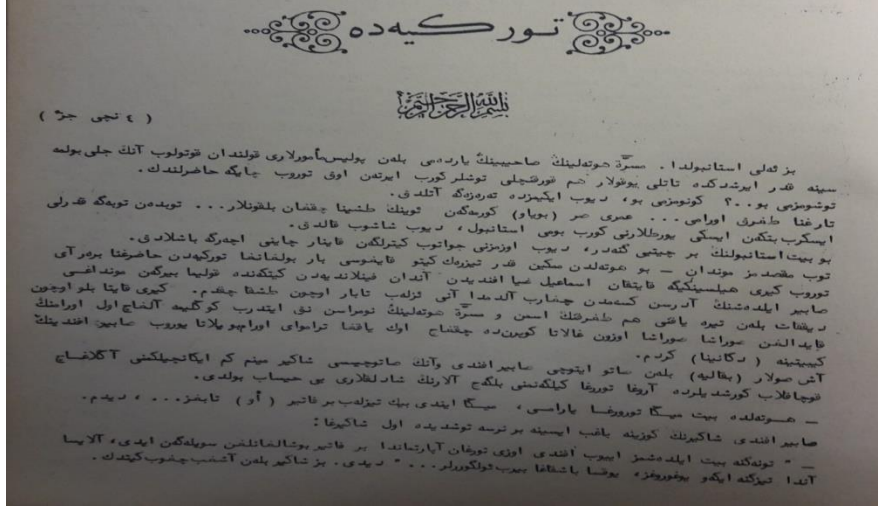 تــور كـــيه ده
بسم الله الرحمن الرحيم
( ٤ نچی جزء )
بز ئەلی استانبولدا. مسرّة هوتەلینڭ صاحبینڭ یاردەمی بلەن پولیس مأمورلاری قولندان قوتولوب آنڭ جلی بولمە
سینە قدر ایرشدكدە تاتلی یوقولار هم قورقنچلی توشلر كورب ایرتەن اوق توروب چایگە حاضرلندك.
توشومزمی بو..؟ كونومزمی بو، دیوب ایكیمزدە تەرەزەگە آتلدق.
تارغنا طقرق اورامی... عمری صر (بویاو) كورمەگەن تویینڭ طشینا چققان بلقونلار... توبدەن توبەگە قدرلی
ایسكرب بتكەن ایسكی یورطلارنی كورب بومی استانبول، دیوب شاشوب قالدق.
بو بیت استانبولنڭ بر چیتی گنەدر، دیوب اوزمزنی جواتوب كیترلگەن قاینار چاینی اچەرگە باشلادق.
توب مقصدمز موندان — بو هوتەلدن سكین قدر تیزرەك كیتو قایغوسی بار بولغانغا توركیەدن حاضرغنا برەر آی
توروب كیری هیلسینكیگە قایتقان اسماعیل ضیا افندیدن آندان فینلاندیەدن كیتكندە قولیما بیرگەن مونداغی
صابیر ایلدەشنڭ آدرسن كسەمدن چغارب آلدمدا آنی ئزلەب تابار اوچون طشقا چقدم. كیری قایتا بلو اوچون
دیققات بلەن تیرە یاقنی هم طقرقنڭ اسمن و مسرّة هوتەلینڭ نومراسن نق ایتدرب كوڭلیمە آلغاچ اول اورامنڭ
قایدالغن صوراشا صوراشا اوزون غالاتا كویرندە چققاچ اوك یاققا تراموای اورامی بویلاتا یوروب صابیر افندینڭ
كیبیتینە ( دكانینا ) كردم.
آش صولار (بقالیە) بلەن صاتو ایتوچی صابیر افندی وآنڭ صاتوچیسی شاكیر مینم كم ایكانچیلكمنی آڭلاغاچ
قوچاقلاب كورشدیلردە آروغا توررغا كیلگەنمنی بلگەچ آلارنڭ شادلقلاری بی حیساب بولدی.
— هــوتەلدە بیت میڭا تورورغا یاراسی، میڭا ایندی بیك تیزلەب بر فاتیر ( أو ) تابغز...، دیدم.
صابیر افندی شاكیرنڭ كوزینە باغب ایسینە بر نرسە توشدیدە اول شاكیرغا :
— " تونەكنە بیت ایلدەشمز ایبوب افندی اوزی تورغان آپارتماندا بر فاتیر بوشالغانلغن سویلەگەن ایدی، آلایسا
آندا تیزكنە ایكەو یوقوروغز، یوقسا باشقاغا بیرب ئولگوررلر... " دیدی. بز شاكیر بلەن آشغب چغوب كیتدك.